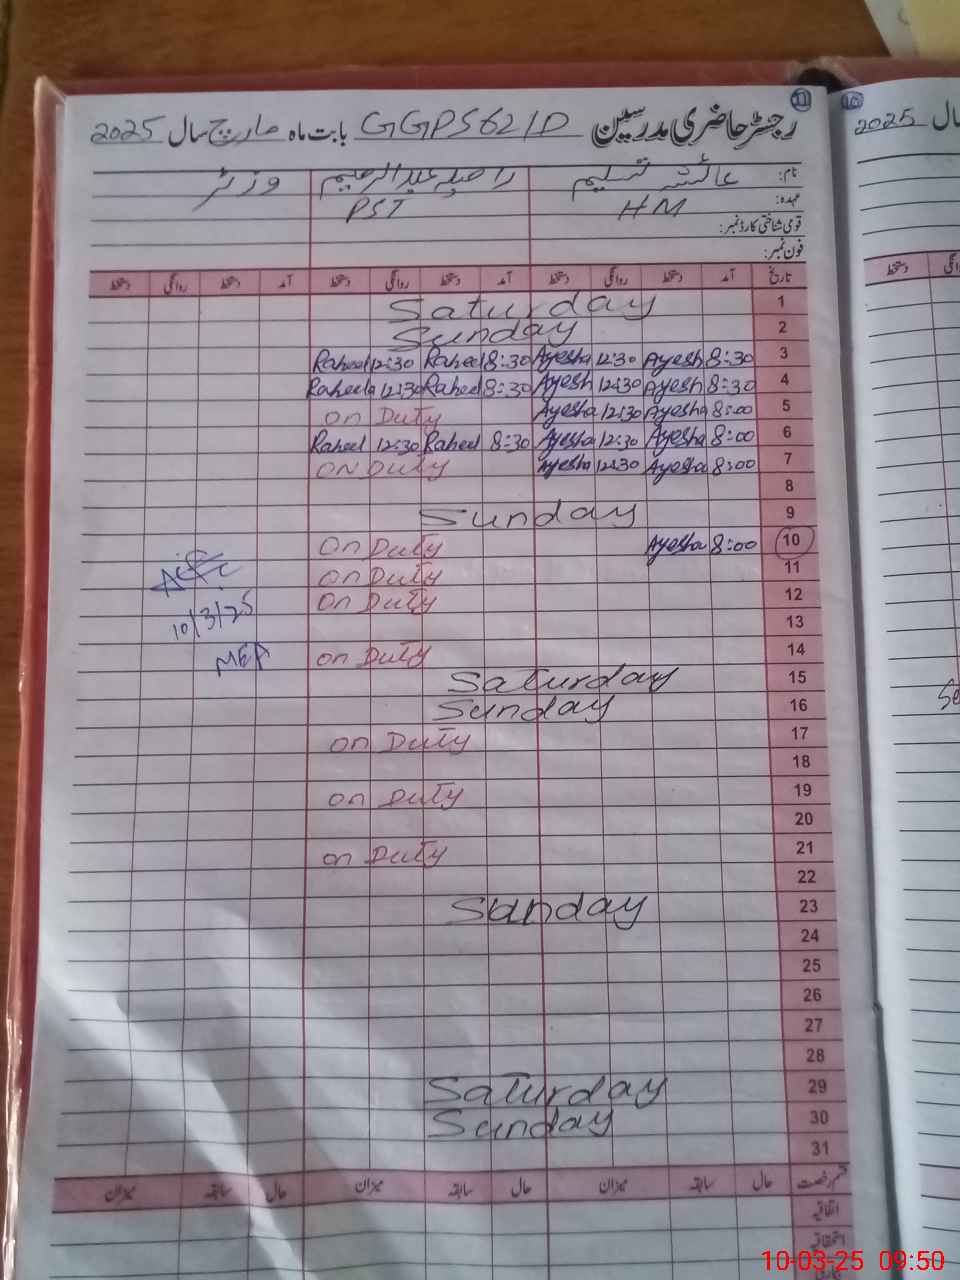 رجسٹر حاضری مدرسین GGPS 621D بابت ماہ مارچ سال 2025
11 10
سال 2025
نام: عائشہ تسلیم راحیلہ عبدالرحیم وزٹر
عہدہ: HM PST
قومی شناختی کارڈ نمبر:
فون نمبر:
تاریخ آمد دستخط روانگی دستخط آمد دستخط روانگی دستخط آمد دستخط روانگی دستخط
1 Saturday
2 Sunday
3 8:30 Ayesh 12:30 Ayesha 8:30 Raheel 12:30 Raheel
4 8:30 Ayesh 12:30 Ayesh 8:30 Raheel 12:30 Raheela
5 8:00 Ayesha 12:30 Ayesha on Duty
6 8:00 Ayesha 12:30 Ayesha 8:30 Raheel 12:30 Raheel
7 8:00 Ayesha 12:30 Ayesha ON Duty
8
9 Sunday
10 8:00 Ayesha On Duty
11 on Duty
12 on Duty
10/3/25
13
14 on Duty MEA
15 Saturday
16 Sunday
17 on Duty
18
19 on Duty
20
21 on Duty
22
23 Sunday
24
25
26
27
28
29 Saturday
30 Sunday
31
قسم رخصت حال سابقہ میزان حال سابقہ میزان حال سابقہ میزان
اتفاقیہ
استحقاقیہ
10-03-25 09:50